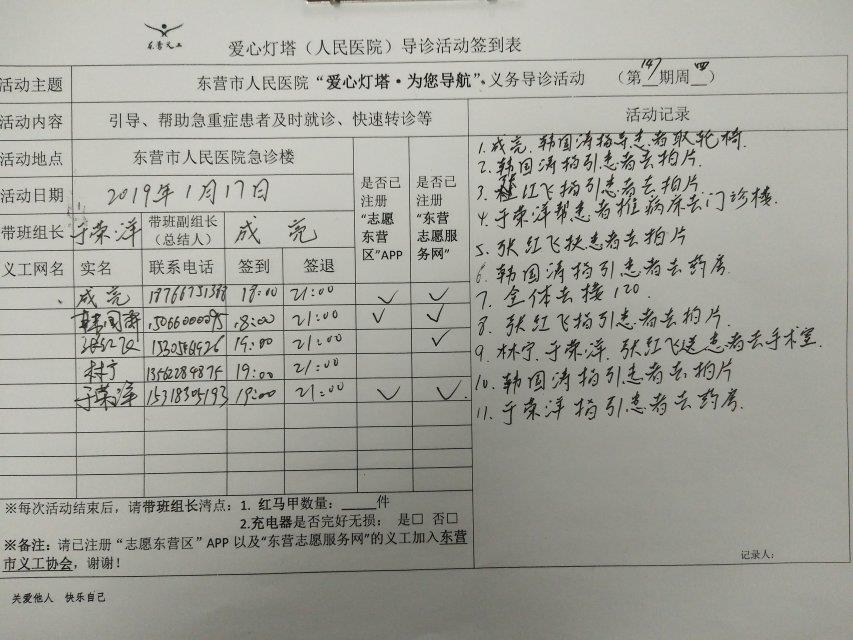 东营义工
爱心灯塔（人民医院）导诊活动签到表
活动主题 东营市人民医院“爱心灯塔·为您导航”·义务导诊活动 （第147期周四）
活动内容 引导、帮助急重症患者及时就诊、快速转诊等
活动记录
活动地点 东营市人民医院急诊楼
活动日期 2019年1月17日
是否已注册“志愿东营区”APP
是否已注册“东营志愿服务网”
带班组长 于荣洋 带班副组长（总结人） 成亮
义工网名 实名 联系电话 签到 签退
成亮 18:00 21:00 ✓ ✓
韩国涛 18:00 21:00 ✓ ✓
张红飞 19:00 21:00 ✓
林宁 19:00 21:00
于荣洋 19:00 21:00 ✓ ✓
1. 成亮、韩国涛指导患者取轮椅.
2. 韩国涛指引患者去拍片.
3. 红飞指引患者去拍片.
4. 于荣洋帮患者推病床去门诊楼.
5. 张红飞扶患者去拍片
6. 韩国涛指引患者去药房.
7. 全体去接120.
8. 张红飞指引患者去拍片.
9. 林宁、于荣洋、张红飞送患者去手术室.
10. 韩国涛指引患者去拍片
11. 于荣洋指引患者去药房.
※每次活动结束后，请带班组长清点：1. 红马甲数量：_____件
2.充电器是否完好无损： 是□ 否□
※备注：请已注册“志愿东营区”APP以及“东营志愿服务网”的义工加入东营
市义工协会，谢谢！
记录人：
关爱他人 快乐自己